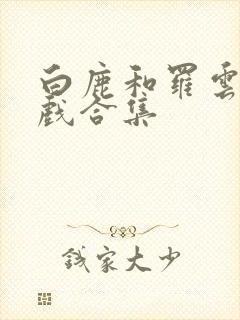 白鹿和羅雲
戲合集
钱家大少